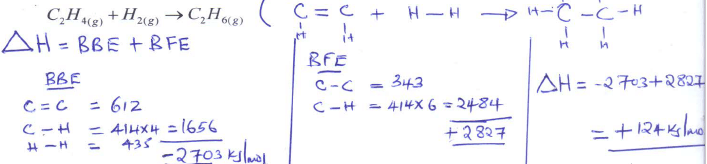 C₂H₄(g) + H₂(g) → C₂H₆(g) ( C = C + H — H → H - C - C - H
H H H H
ΔH = BBE + BFE
BBE
C = C = 612
C - H = 414x4 = 1656
H - H = 435
-2703 KJ/mol
BFE
C - C = 343
C - H = 414x6 = 2484
+2827
ΔH = -2703+2827
= +124 KJ/mol